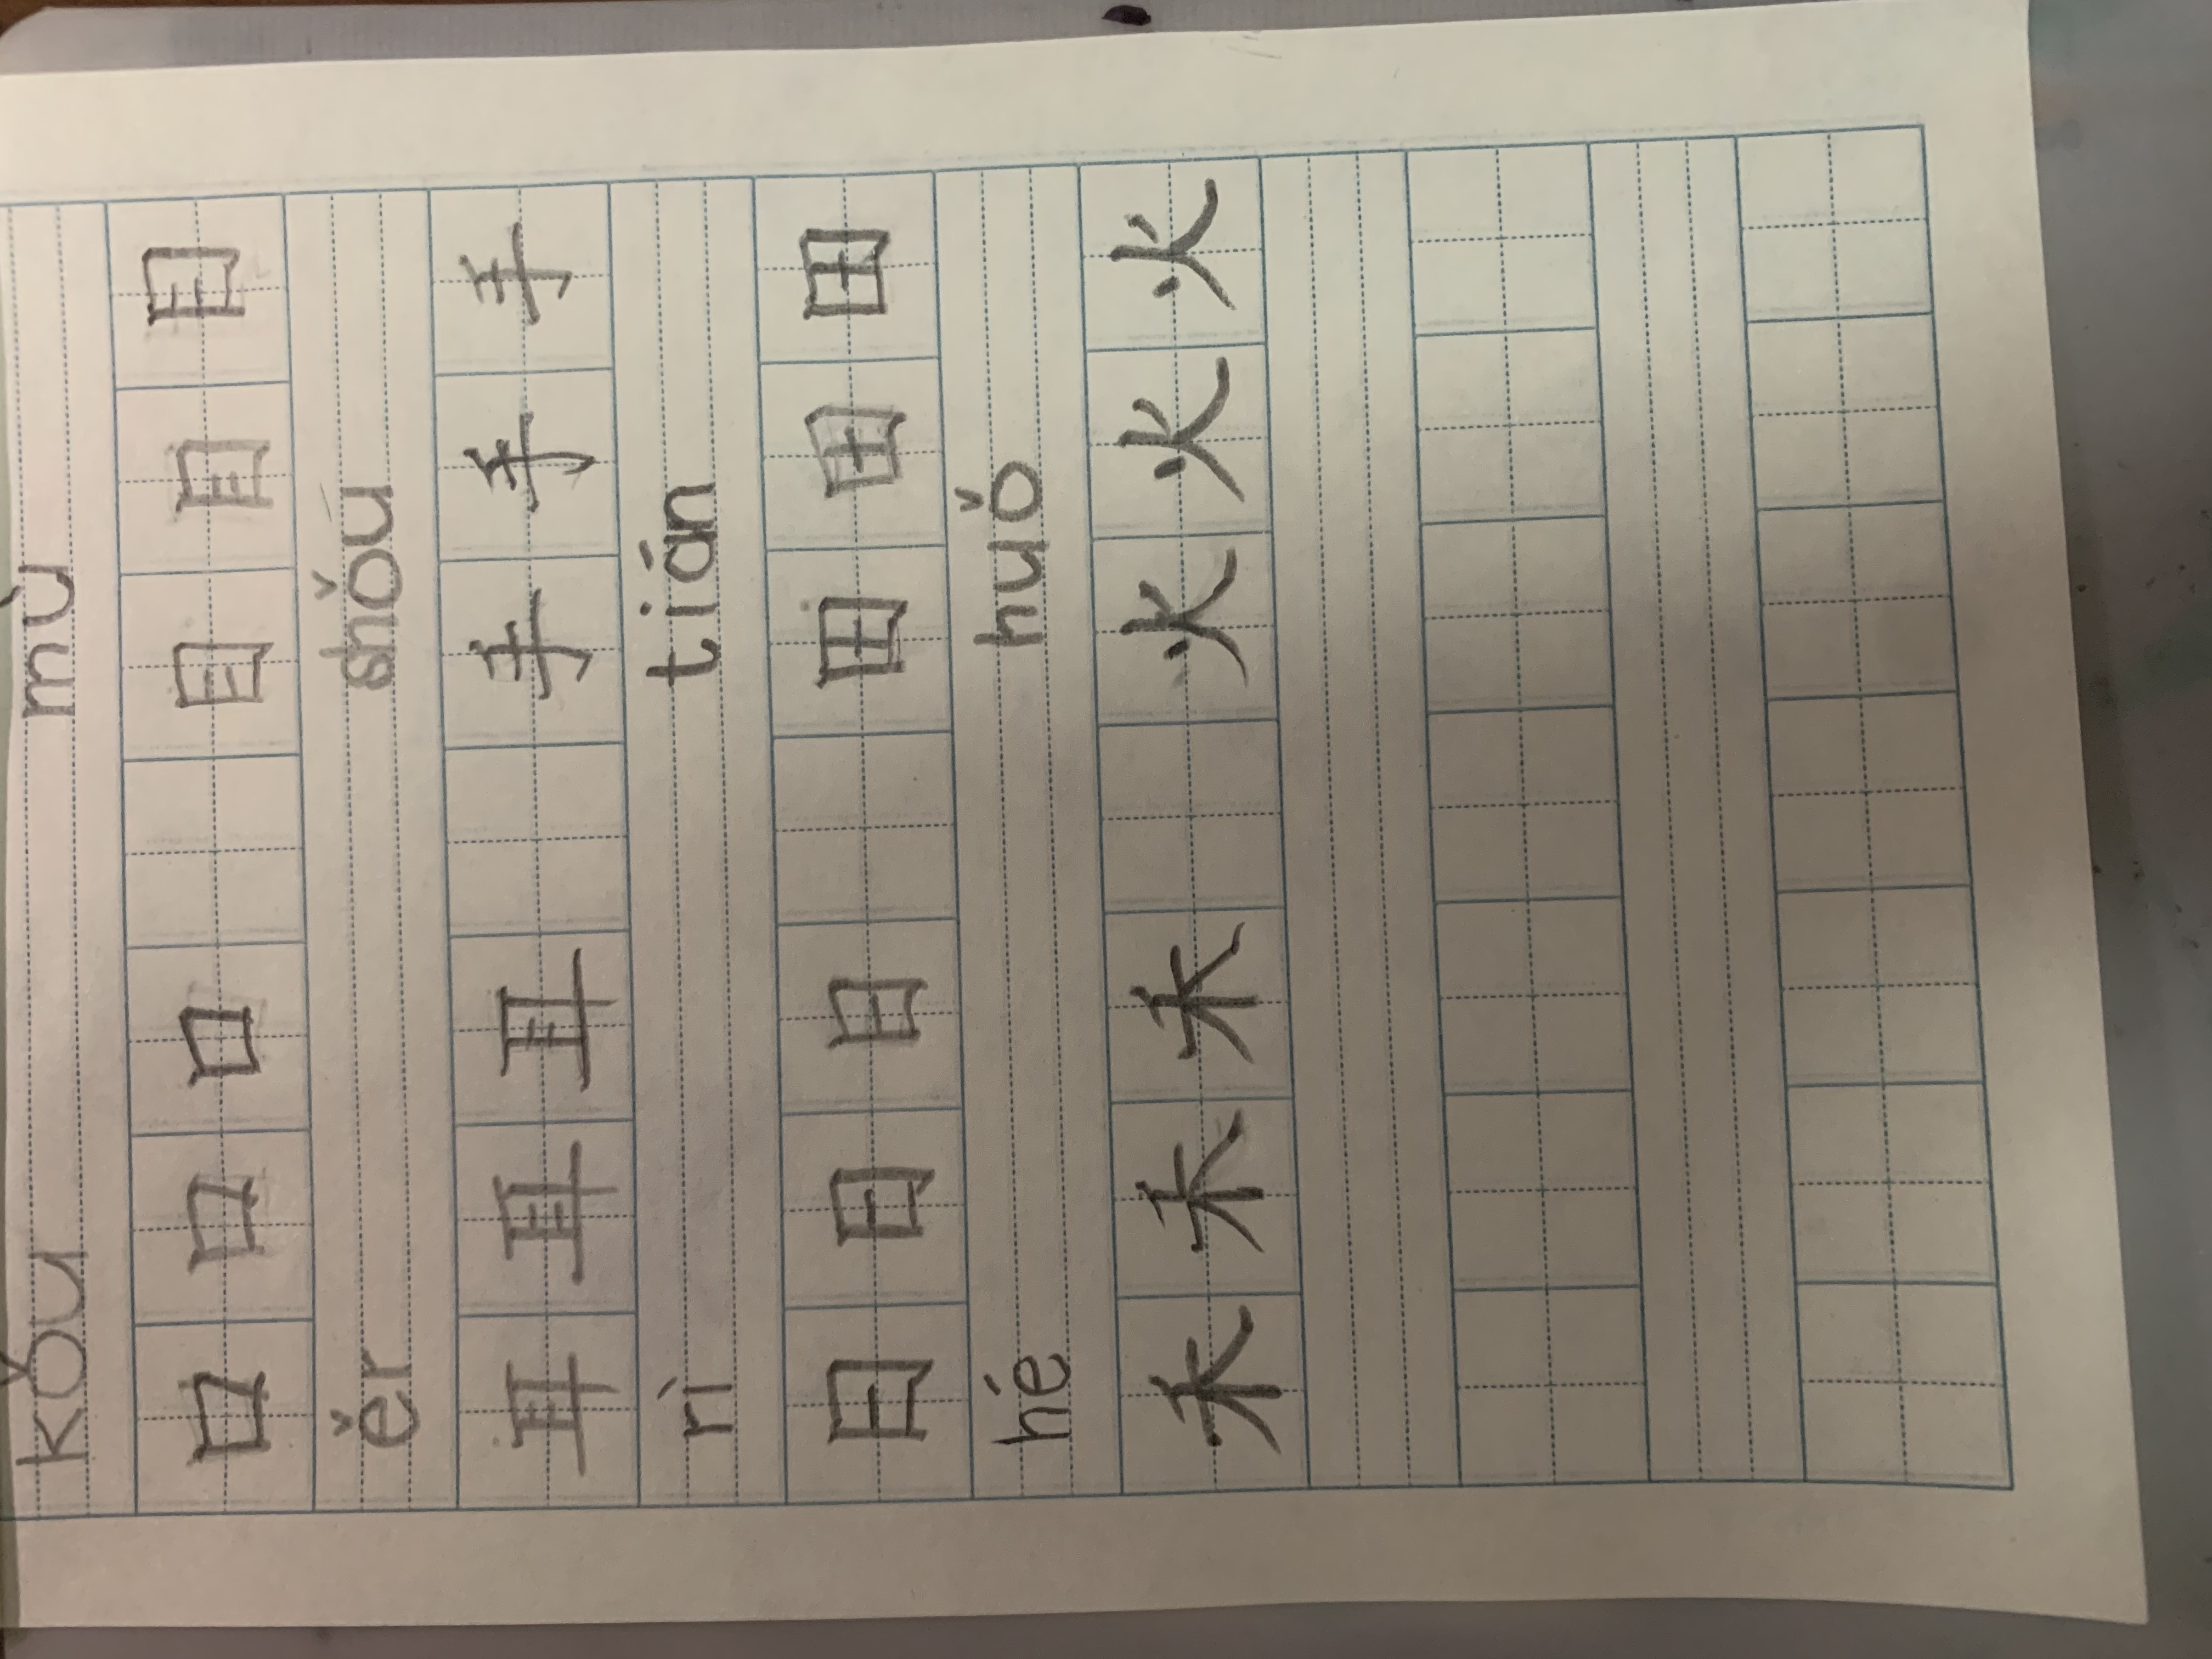 kǒu mù
口 口 口 目 目 目
ěr shǒu
耳 耳 耳 手 手 手
rì tián
日 日 日 田 田 田
hé huǒ
禾 禾 禾 火 火 火